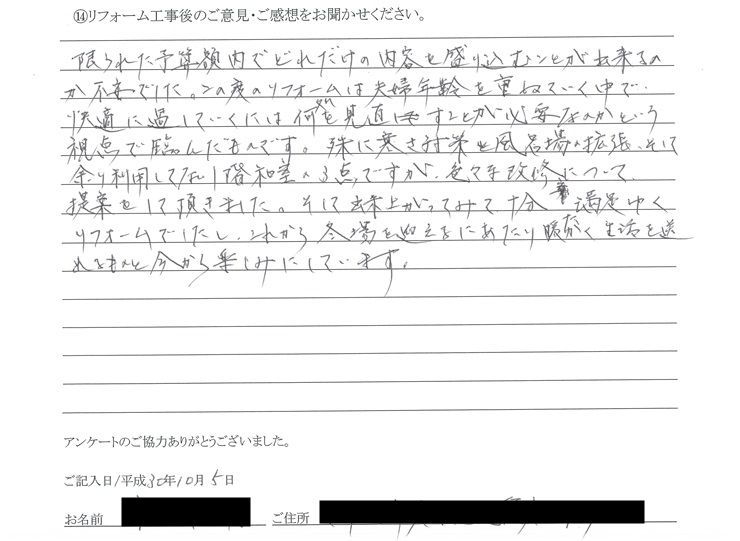 ⑭リフォーム工事後のご意見・ご感想をお聞かせください。
限られた予算額内でどれだけの内容を盛り込むことが出来るの
か不安でした。この度のリフォームは夫婦年齢を重ねていく中で、
快適に過していくには何を見直すことが必要なのかという
視点で臨んだものです。殊に寒さ対策と風呂場の拡張、そして
余り利用してない1階和室の3点ですが、色々な改修について
提案をして頂きました。そして出来上がってみて十分満足ゆく
リフォームでしたし、これから冬場を迎えるにあたり暖かく生活を送
れるものと今から楽しみにしています。
アンケートのご協力ありがとうございました。
ご記入日/平成30年10月5日
お名前 ご住所